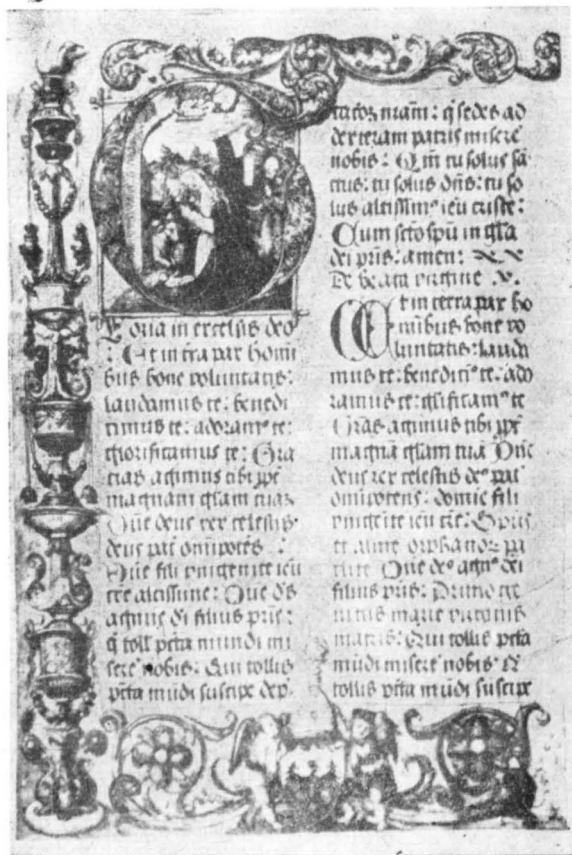 loria in excelsis deo
: Et in tr̄a pax homī
bus bone voluntatis:
laudamus te: benedi
cimus te: adoram⁹ te:
glorificamus te: Gra
cias agimus tibi ꝓpť
magnam gl̄am tuaꝫ
Dn̄e deus rex celestis:
deus pat̄ om̄ipotēs :
Dn̄e fili vnigenite ieu
cr̄e altissime: Dn̄e ds̄
agnus di filius pr̄is:
q̇ toll' pctā mundi mi
sere nobis: Qui tollis
pctā mūdi suscipe dep.
tatoꝫ nr̄am: q̇ sedes ad
dexteram patris misere
nobis: Qm̄ tu solus sā
ctus: tu solus dn̄s: tu so
lus altissim⁹ ieu criste:
Cum sct̄o sp̄u in gl̄a
dei pr̄is: amen:
De beata virgine .v.
Et in terra pax ho
minibus bone vo
luntatis: lauda
mus te: benedici⁹ te: ado
ramus te: gl̄ificam⁹ te
Gr̄as agimus tibi ꝓpť
magnā gl̄am tuā Dn̄e
deus rex celestis de⁹ pat̄
om̄ipotens: domīe fili
vnigēite ieu cr̄e: Sp̄us
et alme orphanoꝝ pa
clite Dn̄e de⁹ agn⁹ dei
filius pr̄is: Primo ge
nitus marie virginis
matris: Qui tollis pctā
mūdi misere nobis Q̇
tollis pctā mūdi suscipe